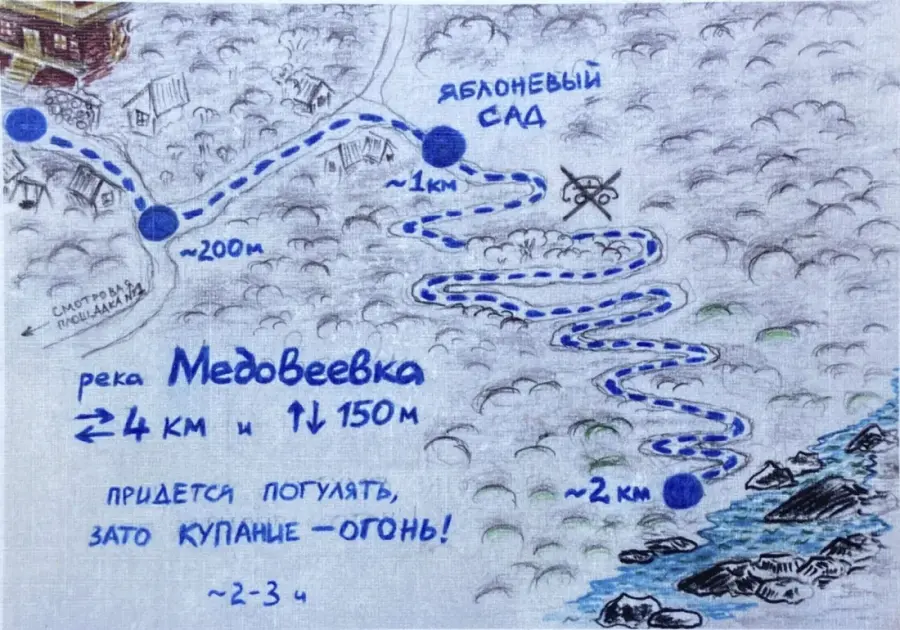 ЯБЛОНЕВЫЙ
САД
~1км
~200м
СМОТРОВАЯ
ПЛОЩАДКА №1
река Медовеевка
⇄ 4 км и ↑↓ 150 м
ПРИДЕТСЯ ПОГУЛЯТЬ,
ЗАТО КУПАНИЕ — ОГОНЬ!
~2-3 ч
~2 км